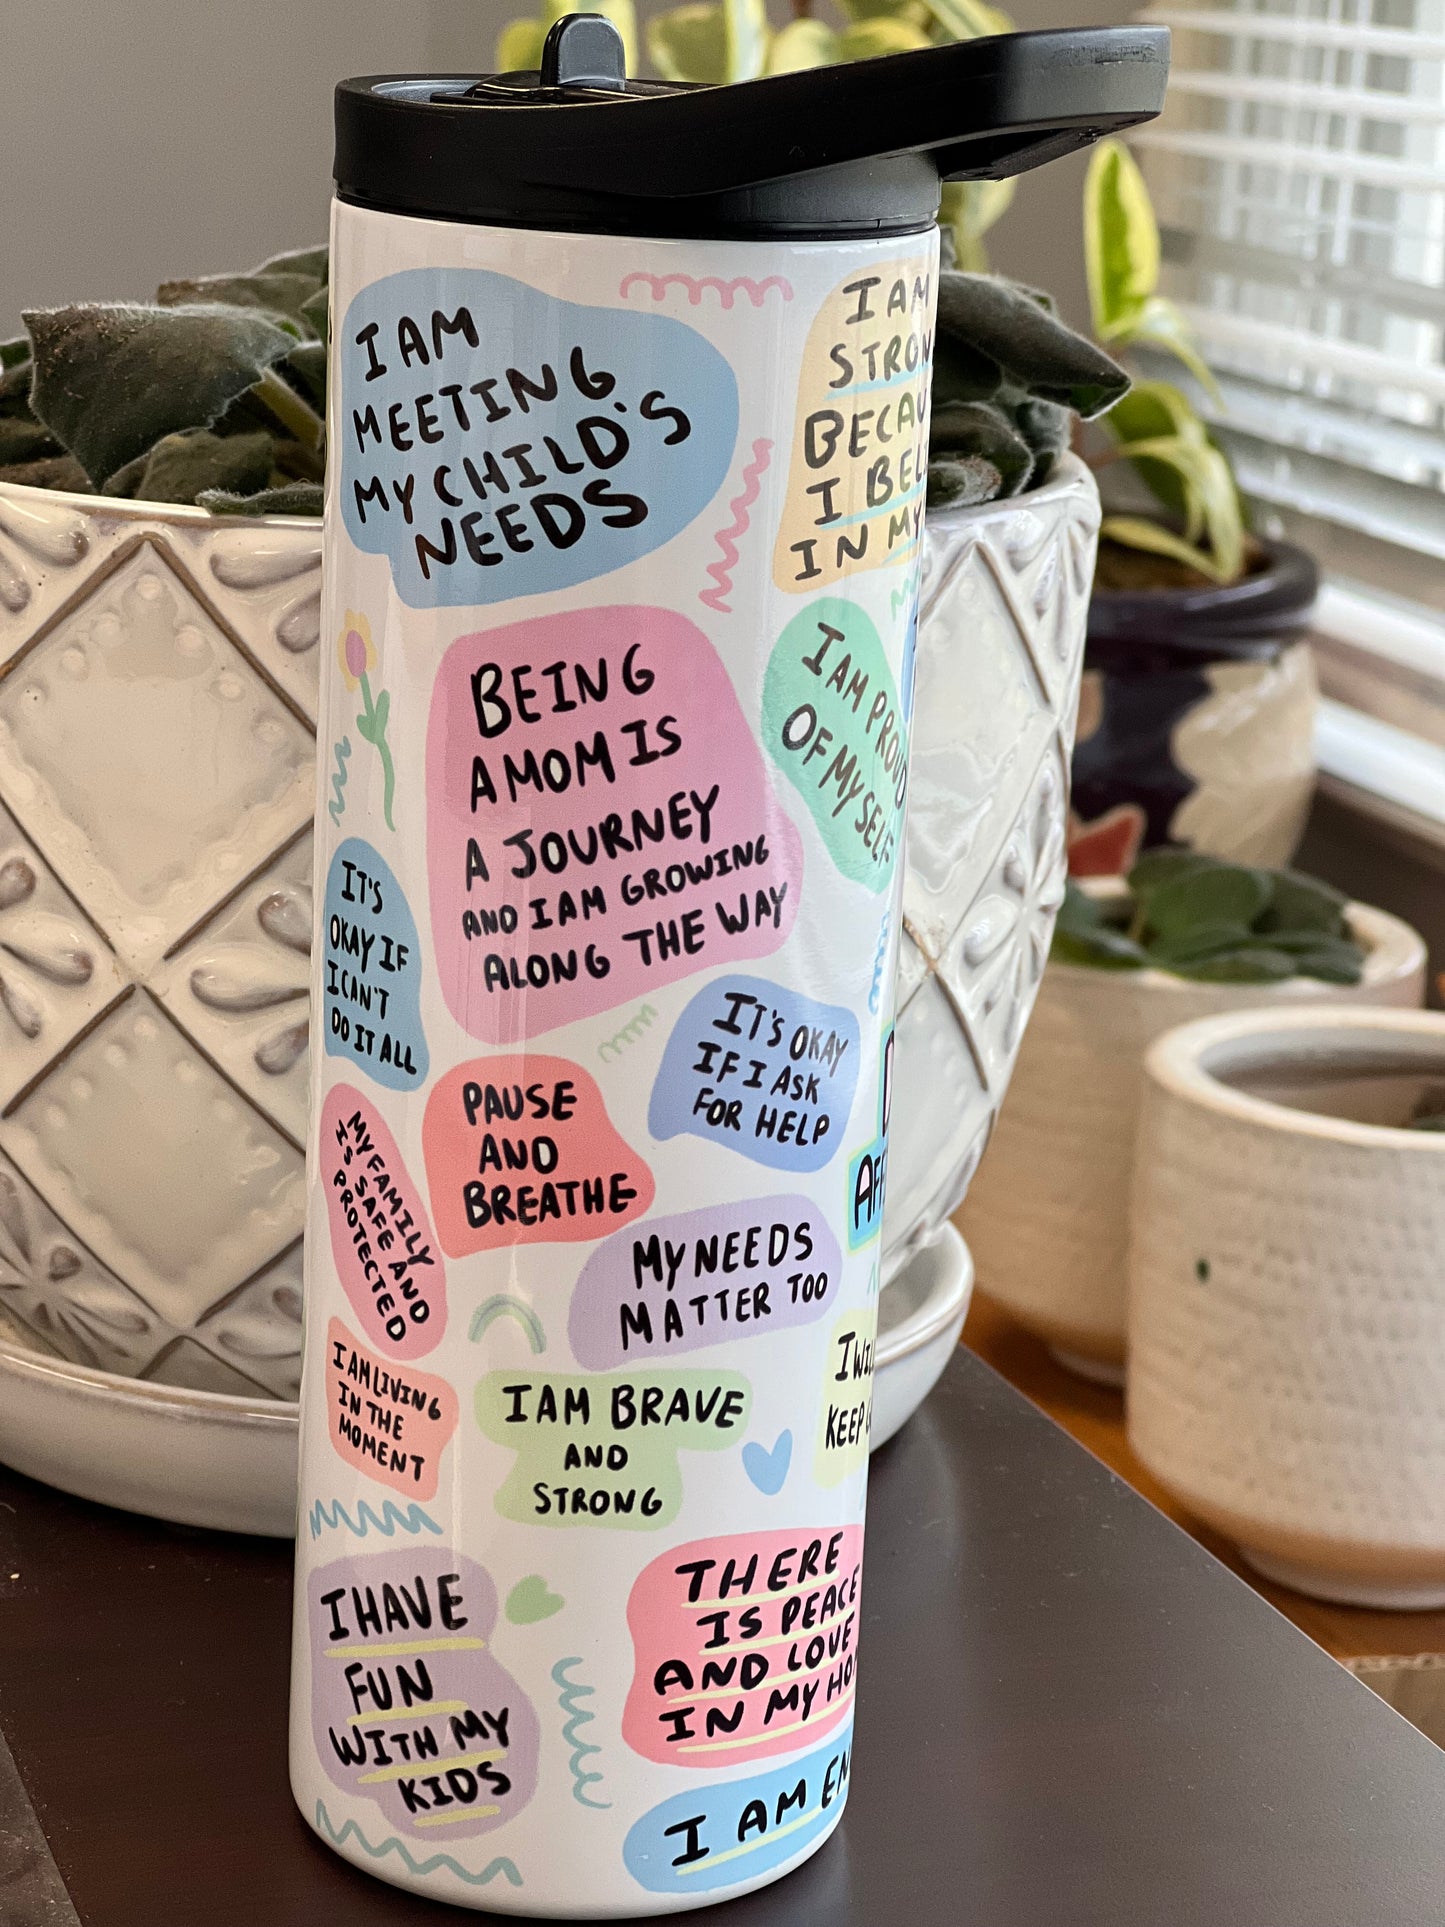 I AM
MEETING
MY CHILD'S
NEEDS
I AM
BEING
A MOM IS
A JOURNEY
AND I AM GROWING
ALONG THE WAY
I AM PROUD
OF MYSELF
IT'S
OKAY IF
I CAN'T
DO IT ALL
IT'S OKAY
IF I ASK
FOR HELP
PAUSE
AND
BREATHE
MY FAMILY
IS SAFE AND
PROTECTED
MY NEEDS
MATTER TOO
I AM LIVING
IN THE
MOMENT
I AM BRAVE
AND
STRONG
I
KEEP
I HAVE
FUN
WITH MY
KIDS
THERE
IS PEACE
AND LOVE
IN MY
I AM